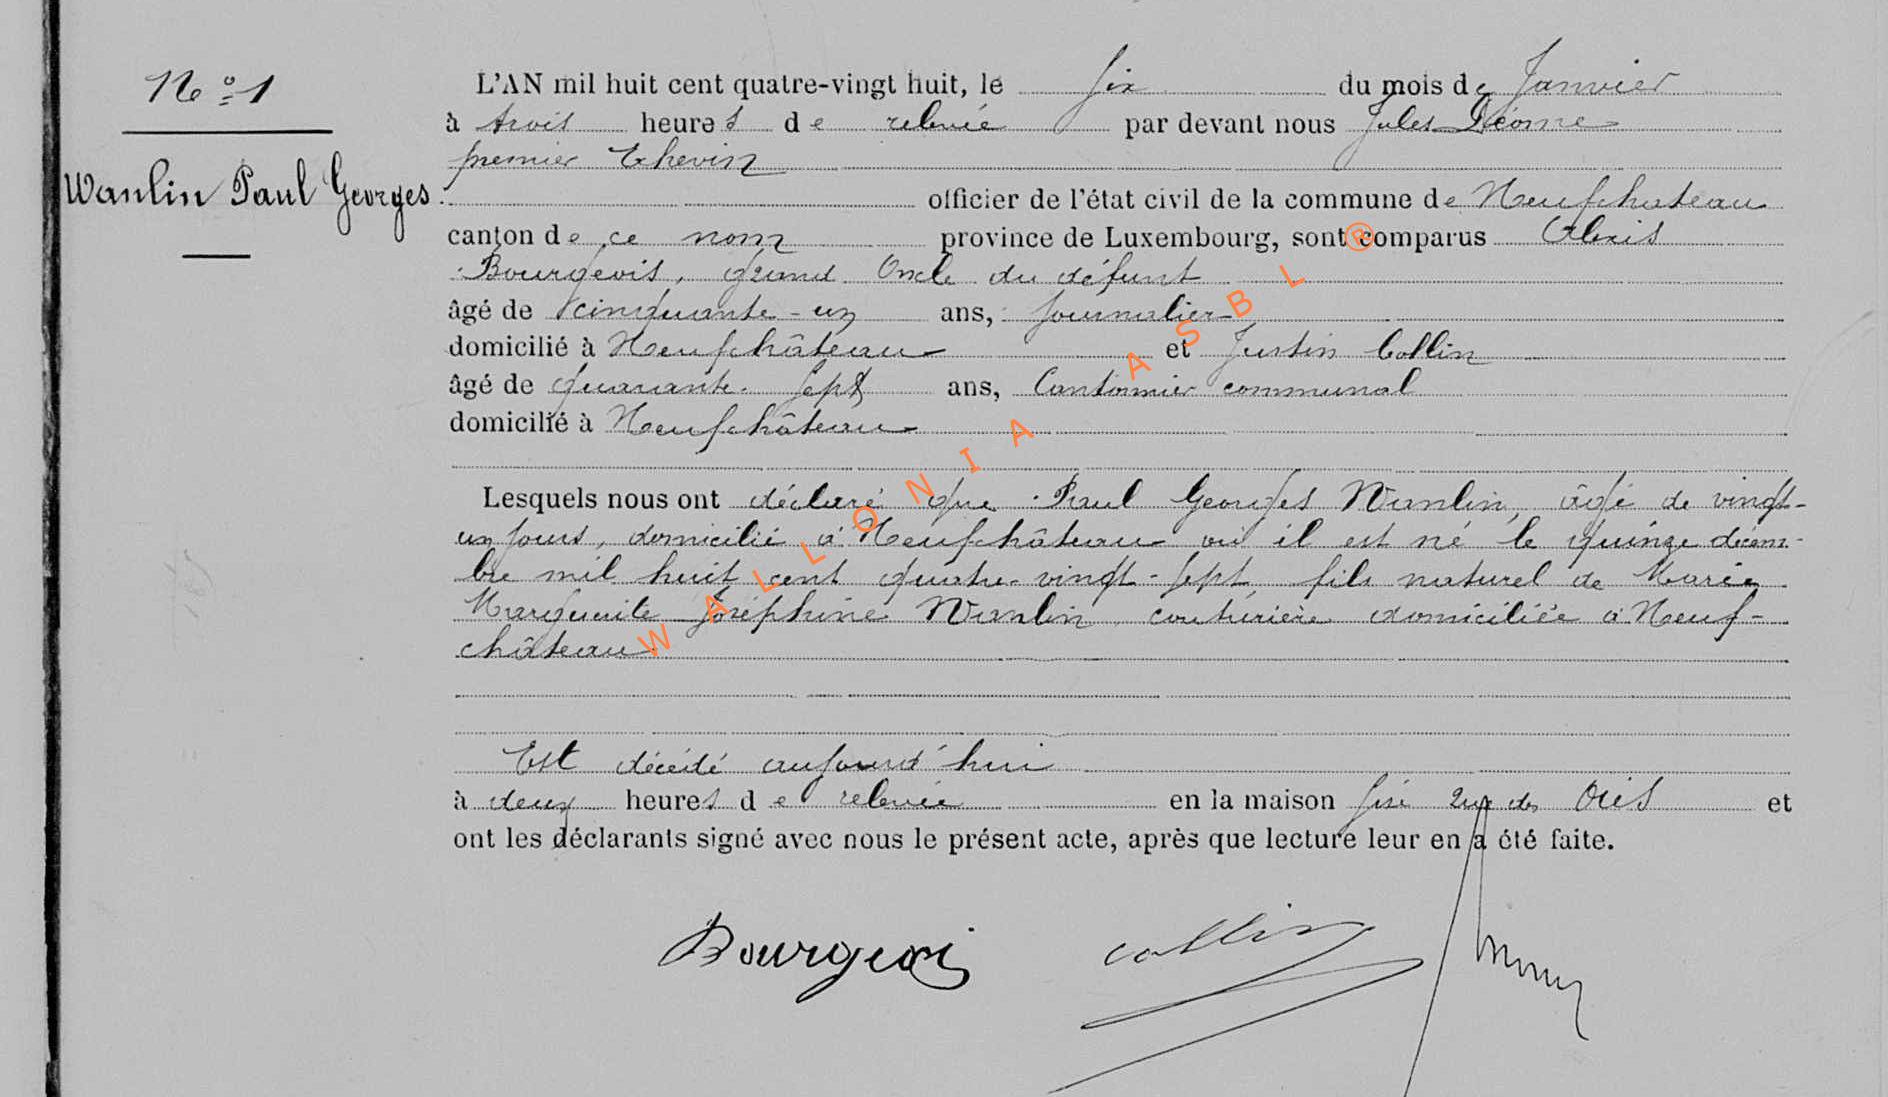 N° 1
Wanlin Paul Georges
L'AN mil huit cent quatre-vingt huit, le six du mois de Janvier
à trois heures de relevée par devant nous Jules
premier Echevin
officier de l'état civil de la commune de Neufchateau
canton de ce nom province de Luxembourg, sont comparus Alexis
Bourgeois, Grand Oncle du défunt
âgé de cinquante-un ans, journalier
domicilié à Neufchâteau et Justin Collin
âgé de quarante-sept ans, Cantonnier communal
domicilié à Neufchâteau
Lesquels nous ont déclaré que Paul Georges Wanlin, âgé de vingt-
un jours, domicilié à Neufchâteau où il est né le quinze décem-
bre mil huit cent quatre-vingt-sept, fils naturel de Marie
Marguerite Joséphine Wanlin, couturière domiciliée à Neuf-
château
Est décédé aujourd'hui
à deux heures de relevée en la maison sise rue des et
ont les déclarants signé avec nous le présent acte, après que lecture leur en a été faite.
Bourgeois Collin
WALLONIA ASBL ®